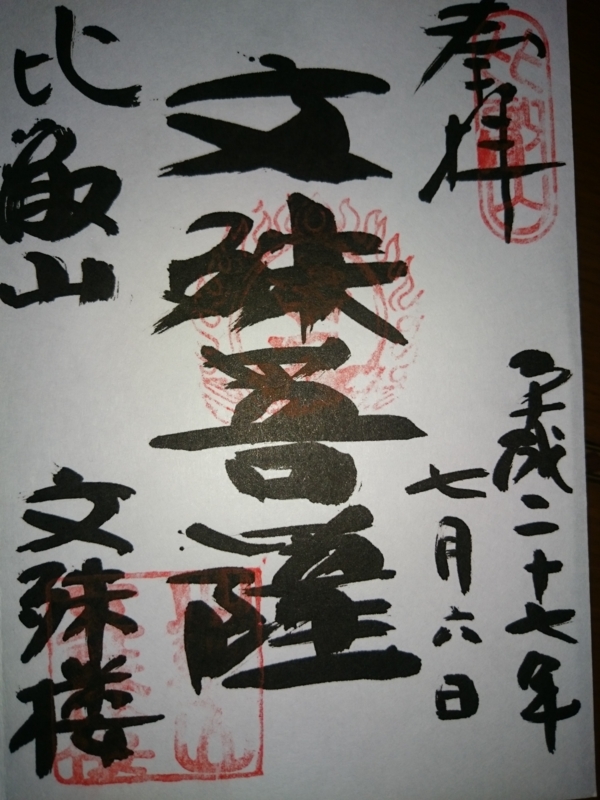 奉拝
平成二十七年
七月六日
文殊菩薩
比叡山
文殊楼